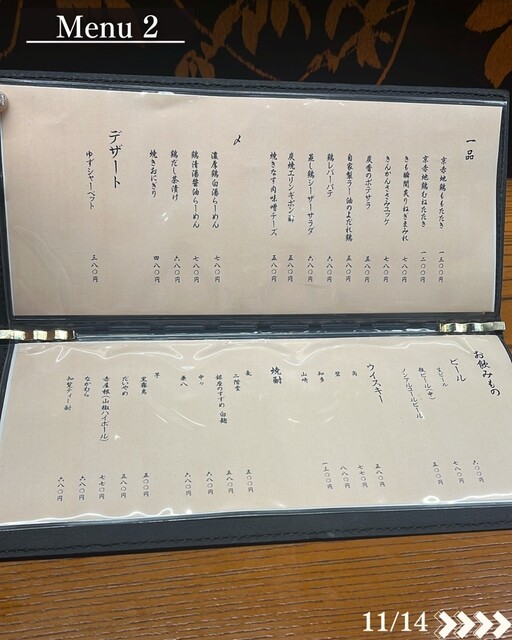 Menu 2
一品
京赤地鶏ももたたき 一三〇〇円
京赤地鶏むねたたき 一二〇〇円
きも瞬間炙りねぎまみれ 七八〇円
きんかんささみユッケ 七八〇円
炭香のポテサラ 五八〇円
自家製ラー油のよだれ鶏 五八〇円
鶏レバーパテ 六八〇円
蒸し鶏シーザーサラダ 六八〇円
炭焼エリンギポン酢 五八〇円
焼きなす肉味噌チーズ 五八〇円
〆
濃厚鶏白湯らーめん 七八〇円
鶏清湯醤油らーめん 七八〇円
鶏だし茶漬け 六八〇円
焼きおにぎり 四八〇円
デザート
ゆずシャーベット 三八〇円
お飲みもの
ビール
生ビール 六〇〇円
瓶ビール(中) 七八〇円
ノンアルコールビール 五〇〇円
ウイスキー
角 五八〇円
碧 七八〇円
知多 八八〇円
山崎 一三〇〇円
焼酎
麦
二階堂 五〇〇円
銀座のすずめ 白麹 五八〇円
中々 六八〇円
兼八 八八〇円
芋
黒霧島 五〇〇円
だいやめ 五八〇円
赤屋根(山椒ハイボール) 七七〇円
なかむら 六八〇円
知覧ティー酎 六八〇円
11/14